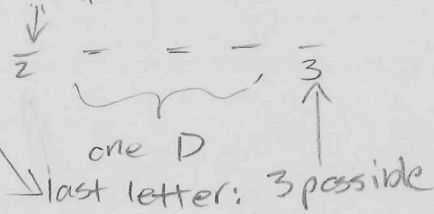 2 3
one D
last letter: 3 possible